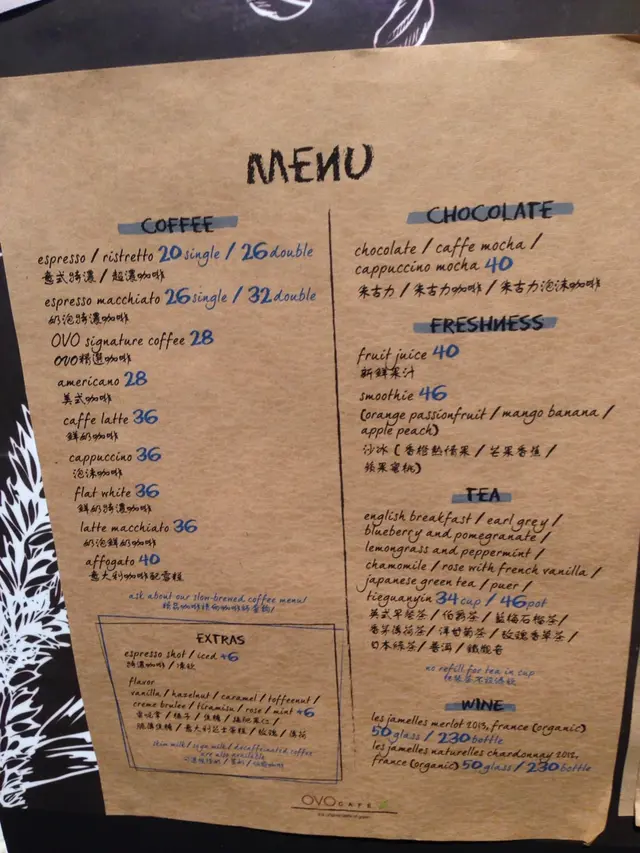 MENU
COFFEE
espresso / ristretto 20 single / 26 double
意式特濃 / 超濃咖啡
espresso macchiato 26 single / 32 double
奶泡特濃咖啡
OVO signature coffee 28
OVO精選咖啡
americano 28
美式咖啡
caffe latte 36
鮮奶咖啡
cappuccino 36
泡沫咖啡
flat white 36
鮮奶特濃咖啡
latte macchiato 36
奶泡鮮奶咖啡
affogato 40
意大利咖啡配雪糕
ask about our slow-brewed coffee menu!
EXTRAS
espresso shot / iced +6
特濃咖啡 / 凍飲
flavor
vanilla / hazelnut / caramel / toffeenut /
creme brulee / tiramisu / rose / mint +6
雲呢拿 / 榛子 / 焦糖 / 拖肥果仁 /
燉蛋焦糖 / 意大利芝士蛋糕 / 玫瑰 / 薄荷
skim milk / soya milk / decaffeinated coffee
are also available
CHOCOLATE
chocolate / caffe mocha /
cappuccino mocha 40
朱古力 / 朱古力咖啡 / 朱古力泡沫咖啡
FRESHNESS
fruit juice 40
新鮮果汁
smoothie 46
(orange passionfruit / mango banana /
apple peach)
沙冰 ( 香橙熱情果 / 芒果香蕉 /
蘋果蜜桃)
TEA
english breakfast / earl grey /
blueberry and pomegranate /
lemongrass and peppermint /
chamomile / rose with french vanilla /
japanese green tea / puer /
tieguanyin 34 cup / 46 pot
英式早餐茶 / 伯爵茶 / 藍莓石榴茶 /
香茅薄荷茶 / 洋甘菊茶 / 玫瑰香草茶 /
日本綠茶 / 普洱 / 鐵觀音
no refill for tea in cup
WINE
les jamelles merlot 2013, france (organic)
50 glass / 230 bottle
les jamelles naturelles chardonnay 2012,
france (organic) 50 glass / 230 bottle
OVO CAFE